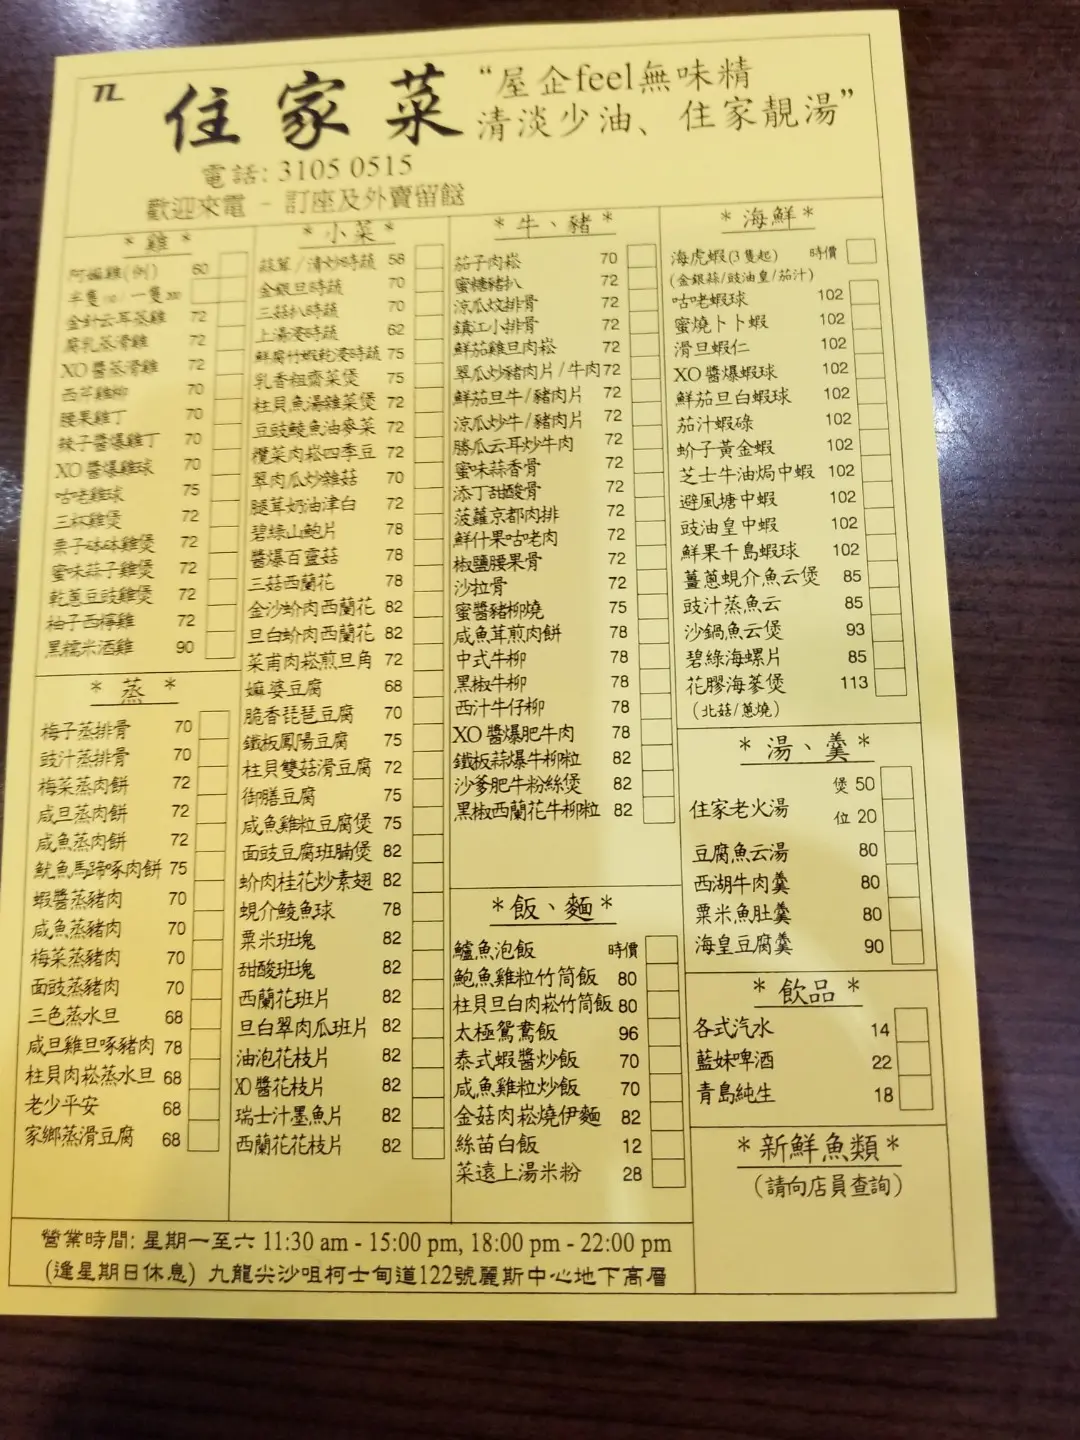 住家菜
“屋企feel無味精
清淡少油、住家靚湯”
電話: 3105 0515
歡迎來電 - 訂座及外賣留餸
* 雞 *
阿嫲雞(例) 60
半隻 一隻
金針云耳蒸雞 72
腐乳蒸滑雞 72
XO醬蒸滑雞 72
西芹雞柳 70
腰果雞丁 70
辣子醬爆雞丁 70
XO醬爆雞球 70
咕咾雞球 75
三杯雞煲 72
栗子砵砵雞煲 72
蜜味蒜子雞煲 72
乾蔥豆豉雞煲 72
柚子西檸雞 72
黑糯米酒雞 90
* 蒸 *
梅子蒸排骨 70
豉汁蒸排骨 70
梅菜蒸肉餅 72
咸旦蒸肉餅 72
咸魚蒸肉餅 72
魷魚馬蹄啄肉餅 75
蝦醬蒸豬肉 70
咸魚蒸豬肉 70
梅菜蒸豬肉 70
面豉蒸豬肉 70
三色蒸水旦 68
咸旦雞旦啄豬肉 78
柱貝肉崧蒸水旦 68
老少平安 68
家鄉蒸滑豆腐 68
* 小菜 *
蒜茸/清炒時蔬 58
金銀旦時蔬 70
三菇扒時蔬 70
上湯浸時蔬 62
鮮腐竹蝦乾浸時蔬 75
乳香粗齋菜煲 75
柱貝魚湯雜菜煲 72
豆豉鯪魚油麥菜 72
欖菜肉崧四季豆 72
翠肉瓜炒雜菇 70
腿茸奶油津白 72
碧綠山鮑片 78
醬爆百靈菇 78
三菇西蘭花 78
金沙蚧肉西蘭花 82
旦白蚧肉西蘭花 82
菜甫肉崧煎旦角 72
嫲婆豆腐 68
脆香琵琶豆腐 70
鐵板鳳陽豆腐 75
柱貝雙菇滑豆腐 72
御膳豆腐 75
咸魚雞粒豆腐煲 75
面豉豆腐班腩煲 82
蚧肉桂花炒素翅 82
蜆介鯪魚球 78
粟米班塊 82
甜酸班塊 82
西蘭花班片 82
旦白翠肉瓜班片 82
油泡花枝片 82
XO醬花枝片 82
瑞士汁墨魚片 82
西蘭花花枝片 82
* 牛、豬 *
茄子肉崧 70
蜜糖豬扒 72
涼瓜炆排骨 72
鎮江小排骨 72
鮮茄雞旦肉崧 72
翠瓜炒豬肉片/牛肉 72
鮮茄旦牛/豬肉片 72
涼瓜炒牛/豬肉片 72
勝瓜云耳炒牛肉 72
蜜味蒜香骨 72
添丁甜酸骨 72
菠蘿京都肉排 72
鮮什果咕咾肉 72
椒鹽腰果骨 72
沙拉骨 72
蜜醬豬柳燒 75
咸魚茸煎肉餅 78
中式牛柳 78
黑椒牛柳 78
西汁牛仔柳 78
XO醬爆肥牛肉 78
鐵板蒜爆牛柳粒 82
沙爹肥牛粉絲煲 82
黑椒西蘭花牛柳粒 82
* 飯、麵 *
鱸魚泡飯 時價
鮑魚雞粒竹筒飯 80
柱貝旦白肉崧竹筒飯 80
太極鴛鴦飯 96
泰式蝦醬炒飯 70
咸魚雞粒炒飯 70
金菇肉崧燒伊麵 82
絲苗白飯 12
菜遠上湯米粉 28
* 海鮮 *
海虎蝦(3隻起) 時價
(金銀蒜/豉油皇/茄汁)
咕咾蝦球 102
蜜燒卜卜蝦 102
滑旦蝦仁 102
XO醬爆蝦球 102
鮮茄旦白蝦球 102
茄汁蝦碌 102
蚧子黃金蝦 102
芝士牛油焗中蝦 102
避風塘中蝦 102
豉油皇中蝦 102
鮮果千島蝦球 102
薑蔥蜆介魚云煲 85
豉汁蒸魚云 85
沙鍋魚云煲 93
碧綠海螺片 85
花膠海蔘煲 113
(北菇/蔥燒)
* 湯、羹 *
住家老火湯 煲 50
位 20
豆腐魚云湯 80
西湖牛肉羹 80
粟米魚肚羹 80
海皇豆腐羹 90
* 飲品 *
各式汽水 14
藍妹啤酒 22
青島純生 18
* 新鮮魚類 *
(請向店員查詢)
營業時間: 星期一至六 11:30 am - 15:00 pm, 18:00 pm - 22:00 pm
(逢星期日休息) 九龍尖沙咀柯士甸道122號麗斯中心地下高層